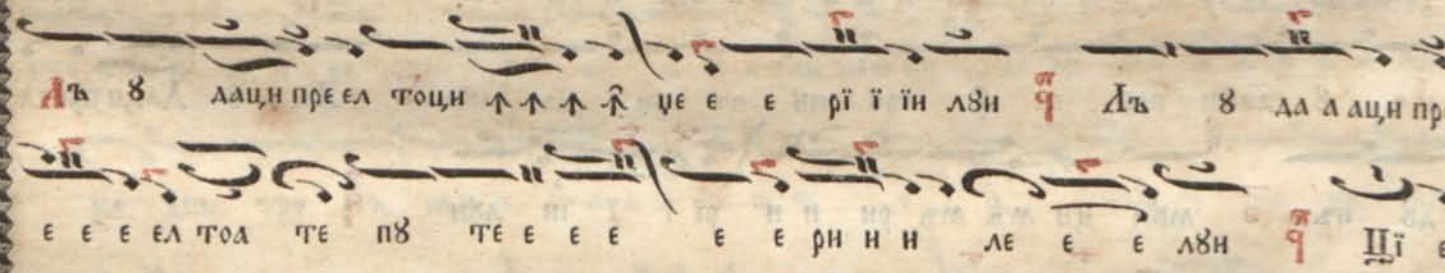 Лъ ꙋ даци пре ел тоци ꙟ ꙟ ꙟ ꙟ҃ џе е е рї ї їи лꙋи Лъ ꙋ да а аци пр
е е е ел тоа те пꙋ те е е е е е ри и и ле е е лꙋи Цї